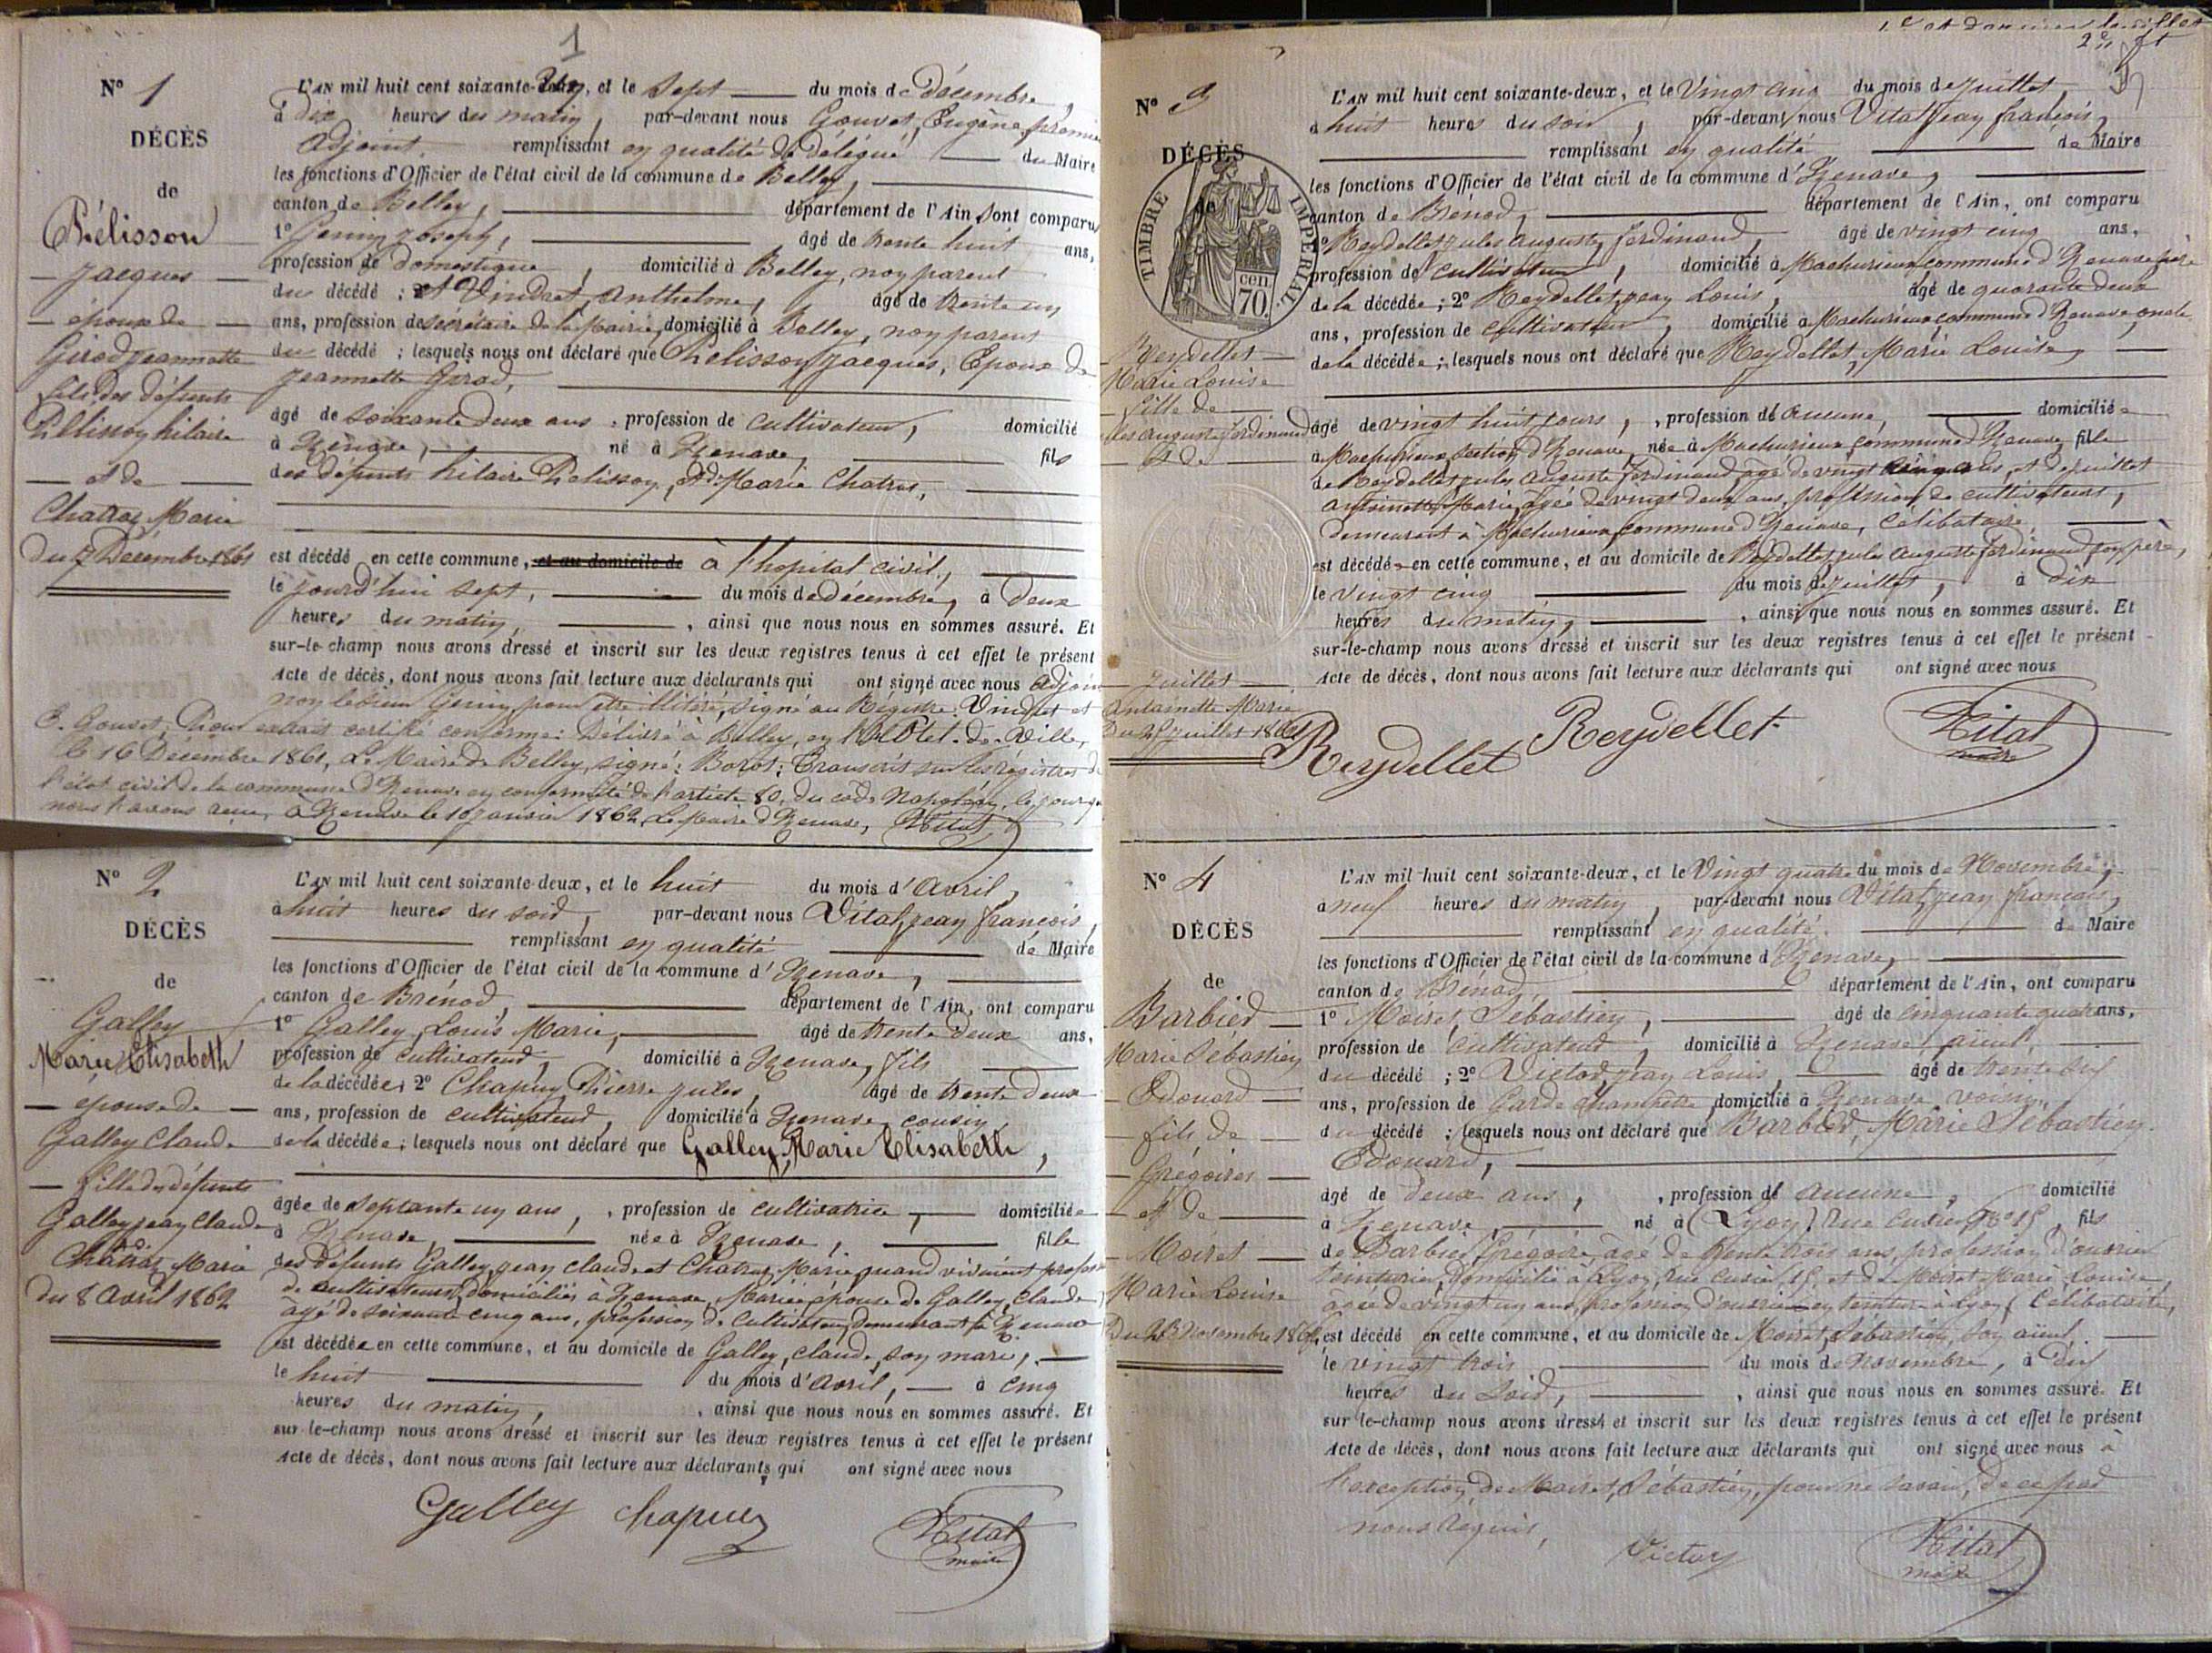 1
N° 1
DÉCÈS
de
Pélisson
Jacques
époux de
Girod Jeannette
fils des défunts
Pélisson hilaire
et de
Chatraz Marie
Du 7 Décembre 1861
L'AN mil huit cent soixante-un, et le Sept du mois de Décembre,
à dix heures du matin, par-devant nous Gouvet, Eugène, premier
adjoint, remplissant en qualité de délégué du Maire
les fonctions d'Officier de l'état civil de la commune de Belley,
canton de Belley, département de l'Ain, sont comparu
1° Genin Joseph, âgé de trente huit ans,
profession de domestique, domicilié à Belley, non parent
du décédé ; et Vindret, Anthelme, âgé de trente un
ans, profession de secrétaire de la Mairie, domicilié à Belley, non parent
du décédé ; lesquels nous ont déclaré que Pélisson Jacques, Epoux de
Jeannette Girod,
âgé de soixante deux ans, profession de cultivateur, domicilié
à Izenave, né à Izenave, fils
des défunts hilaire Pelisson, et Marie Chatraz,
est décédé en cette commune, et au domicile de à l'hopital civil,
le jourd'hui sept, du mois de décembre, à Deux
heures du matin, ainsi que nous nous en sommes assuré. Et
sur-le-champ nous avons dressé et inscrit sur les deux registres tenus à cet effet le présent
Acte de décès, dont nous avons fait lecture aux déclarants qui ont signé avec nous adjoint
non le sieur Genin, pour être illitéré, signé au Registre, Vindret et
E. Gouvet, Pour extrait certifié conforme: Délivré à Belley, en l'hôtel-de-Ville,
le 16 Décembre 1861, Le Maire de Belley, signé: Transcrit sur les registres de
l'état civil de la commune d'Izenave en conformité de l'article 80, du code Napoléon, le jour que
nous l'avons reçu, à Izenave le 10 janvier 1862, Le Maire d'Izenave, Vital
N° 2
DÉCÈS
de
Galley
Marie Elisabeth
épouse de
Galley Claude
fille des défunts
Galley Jean Claude
et de
Chatraz Marie
du 8 Avril 1862
L'AN mil huit cent soixante-deux, et le huit du mois d'Avril,
à huit heures du soir, par-devant nous Vital, Jean François,
remplissant en qualité de Maire
les fonctions d'Officier de l'état civil de la commune d'Izenave,
canton de Brénod, département de l'Ain, ont comparu
1° Galley, Louis Marie, âgé de trente deux ans,
profession de cultivateur, domicilié à Izenave, fils
de la décédée, 2° Chapuy, Pierre Jules, âgé de trente deux
ans, profession de cultivateur, domicilié à Izenave, cousin
de la décédée ; lesquels nous ont déclaré que Galley, Marie Elisabeth,
âgée de septante un ans, profession de cultivatrice, domiciliée
à Izenave, née à Izenave, fille
des défunts Galley, Jean Claude et Chatraz, Marie quand vivaient profession
de cultivateurs, domiciliés à Izenave, Mariée, épouse de Galley, Claude,
agé de soixante cinq ans, profession de cultivateur, demeurant à Izenave
est décédée en cette commune, et au domicile de Galley, Claude, son mari,
le huit du mois d'Avril, à cinq
heures du matin, ainsi que nous nous en sommes assuré. Et
sur-le-champ nous avons dressé et inscrit sur les deux registres tenus à cet effet le présent
Acte de décès, dont nous avons fait lecture aux déclarants qui ont signé avec nous
Galley Chapuy Vital
maire
2e ft
N° 3
DÉCÈS
de
TIMBRE IMPERIAL
70 cen.
Reydellet
Marie Louise
fille de
Jules Auguste Ferdinand
et de
Juillet
Antoinette Marie
Du 25 Juillet 1862
L'AN mil huit cent soixante-deux, et le Vingt cinq du mois de Juillet,
à huit heures du soir, par-devant nous Vital Jean François,
remplissant en qualité de Maire
les fonctions d'Officier de l'état civil de la commune d'Izenave,
canton de Brénod, département de l'Ain, ont comparu
1° Reydellet Jules Auguste, Ferdinand, âgé de vingt cinq ans,
profession de cultivateur, domicilié à Machurieux, commune d'Izenave père
de la décédée ; 2° Reydellet, Jean Louis, âgé de quarante deux
ans, profession de cultivateur, domicilié à Machurieux, commune d'Izenave, oncle
de la décédée ; lesquels nous ont déclaré que Reydellet, Marie Louise,
âgé de vingt huit jours, profession de aucune, domiciliée
à Machurieux, section d'Izenave, née à Machurieux, commune d'Izenave, fille
de Reydellet, Jules Auguste Ferdinand, âgé de vingt cinq ans, et de Juillet
Antoinette, Marie, âgée de vingt deux ans, profession de cultivateurs,
demeurant à Machurieux, commune d'Izenave, Célibataire,
est décédée en cette commune, et au domicile de Reydellet, Jules Auguste Ferdinand, son père,
le vingt cinq du mois de Juillet, à Dix
heures du matin, ainsi que nous nous en sommes assuré. Et
sur-le-champ nous avons dressé et inscrit sur les deux registres tenus à cet effet le présent
Acte de décès, dont nous avons fait lecture aux déclarants qui ont signé avec nous
Reydellet Reydellet Vital
maire
N° 4
DÉCÈS
de
Barbier
Marie Sébastien
Edouard
fils de
Grégoire
et de
Moiret
Marie Louise
Du 23 Novembre 1862
L'AN mil huit cent soixante-deux, et le Vingt quatre du mois de Novembre,
à neuf heures du matin, par-devant nous Vital, Jean François,
remplissant en qualité de Maire
les fonctions d'Officier de l'état civil de la commune d'Izenave,
canton de Brénod, département de l'Ain, ont comparu
1° Moiret, Sébastien, âgé de cinquante quatre ans,
profession de cultivateur, domicilié à Izenave, aïeul,
du décédé ; 2° Victor, Jean Louis, âgé de trente
ans, profession de Garde champêtre, domicilié à Izenave, voisin,
du décédé ; lesquels nous ont déclaré que Barbier, Marie Sébastien
Edouard,
âgé de deux ans, profession de aucune, domicilié
à Izenave, né à (Lyon) Rue Cuvier, N° 15, fils
de Barbier, Grégoire, agé de trente trois ans, profession d'ouvrier
teinturier, domicilié à Lyon, rue Cuvier, 15, et de Moiret Marie Louise,
âgée de vingt un ans, profession d'ouvrière en teinture à Lyon, Célibataire,
est décédé en cette commune, et au domicile de Moiret, Sébastien, son aïeul,
le vingt trois du mois de Novembre, à Dix
heures du soir, ainsi que nous nous en sommes assuré. Et
sur-le-champ nous avons dressé et inscrit sur les deux registres tenus à cet effet le présent
Acte de décès, dont nous avons fait lecture aux déclarants qui ont signé avec nous à
l'exception de Moiret, Sébastien, pour ne savoir, de ce par
nous requis,
Victor Vital
maire